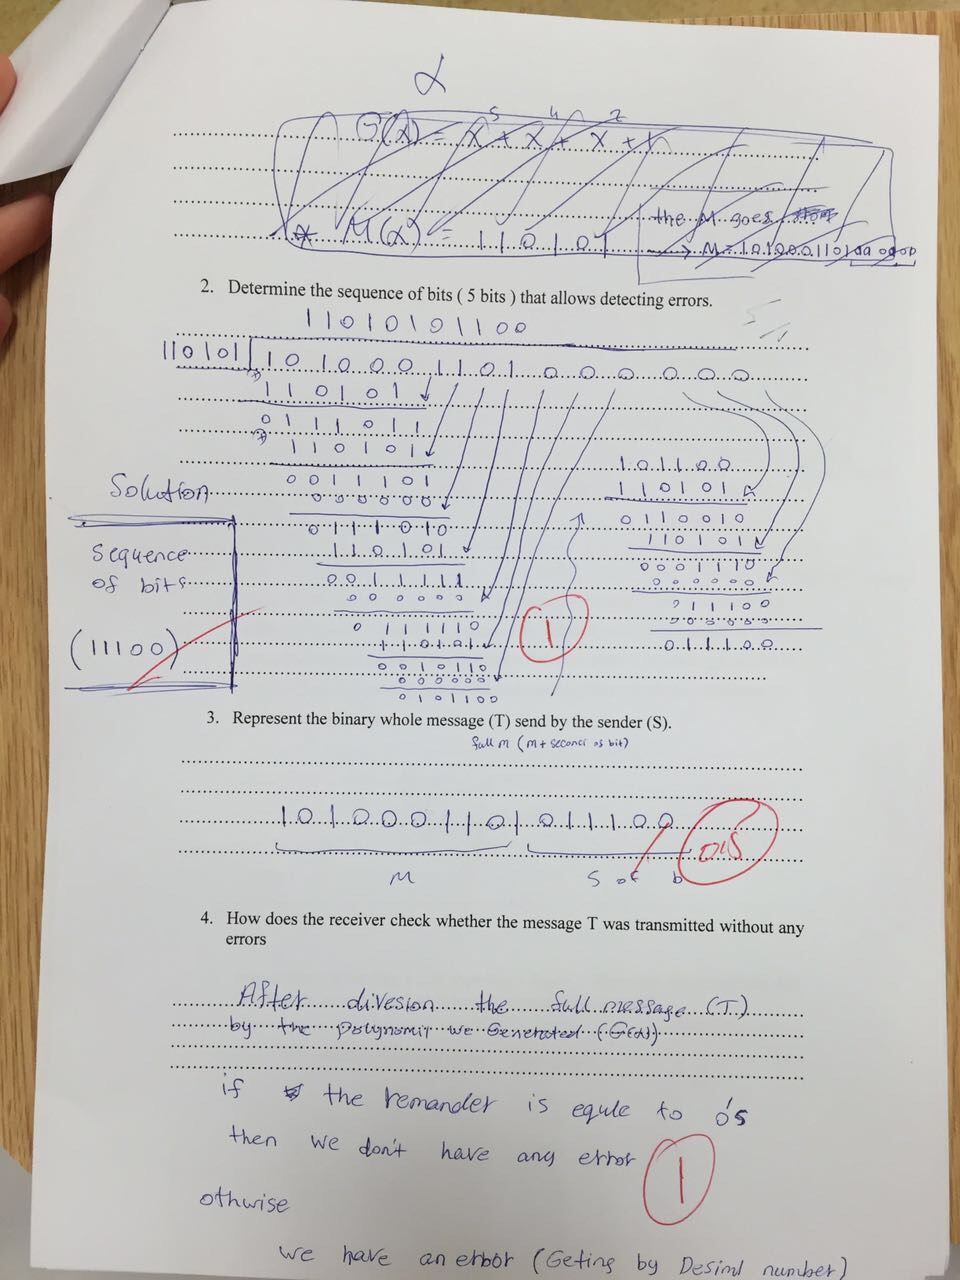 α
G(x) = x⁵ + x⁴ + x² + 1
* M(x) = 110101
the M goes
→ M = 1010001101000000
2. Determine the sequence of bits ( 5 bits ) that allows detecting errors.
11010101100
110101
1010001101000000
110101
0111011
110101
0011101
000000
0111010
110101
0011111
000000
0111110
110101
0010110
000000
0101100
101100
110101
0110010
110101
0001110
000000
011100
000000
011100
Solution
sequence
of bits
(11100)
1
3. Represent the binary whole message (T) send by the sender (S).
full m (m + seconci of bit)
1010001101 011100
0.5
M
S of b
4. How does the receiver check whether the message T was transmitted without any
errors
After divesion the full message (T)
by the Polynomit we Generated (G(x))
if the remander is equle to 0's
then we don't have any error
1
othwise
we have an error (Geting by Desiml number)